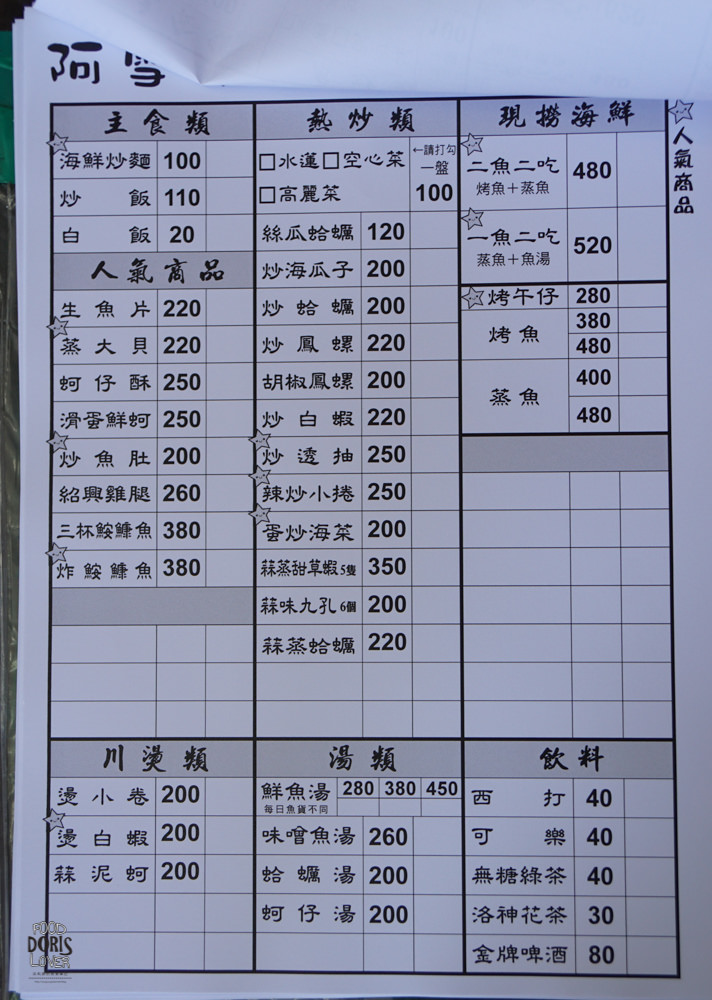 阿雪
主食類
海鮮炒麵 100
炒飯 110
白飯 20
人氣商品
生魚片 220
蒸大貝 220
蚵仔酥 250
滑蛋鮮蚵 250
炒魚肚 200
紹興雞腿 260
三杯鮟鱇魚 380
炸鮟鱇魚 380
熱炒類
□水蓮□空心菜
□高麗菜
←請打勾
一盤
100
絲瓜蛤蠣 120
炒海瓜子 200
炒蛤蠣 200
炒鳳螺 220
胡椒鳳螺 200
炒白蝦 220
炒透抽 250
辣炒小捲 250
蛋炒海菜 200
蒜蒸甜草蝦5隻 350
蒜味九孔6個 200
蒜蒸蛤蠣 220
現撈海鮮
二魚二吃 480
烤魚＋蒸魚
一魚二吃 520
蒸魚＋魚湯
烤午仔 280
烤魚 380
480
蒸魚 400
480
人氣商品
川燙類
燙小卷 200
燙白蝦 200
蒜泥蚵 200
湯類
鮮魚湯 280 380 450
每日魚貨不同
味噌魚湯 260
蛤蠣湯 200
蚵仔湯 200
飲料
西打 40
可樂 40
無糖綠茶 40
洛神花茶 30
金牌啤酒 80
FOOD
DORIS
LOVER